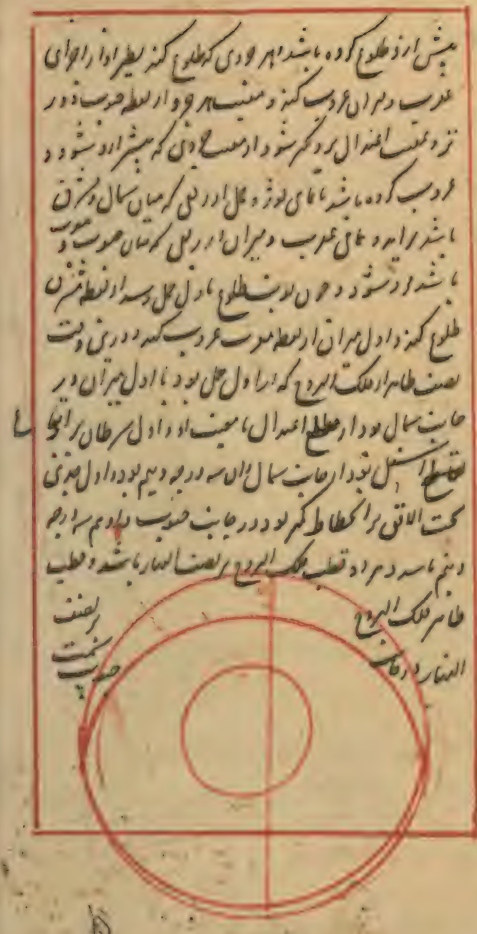 پیش ازو طلوع کرده باشد و هر جزوی که طلوع کند نظیر او از اجزای
غروب و میزان غروب کند و مغیب هر جزو از نقطه جنوب دور
تر و بمغیب اعتدال نزدیکتر شود از مغیب جزوی که پیش ازو
غروب کرده باشد تا تمامی و حمل از ربعی که میان شمال و مشرق
باشد برآید و تمامی عقرب و میزان از ربعی که میان جنوب و مغرب
باشد فرو شود و چون نوبت طلوع باول حمل رسد از نقطه مشرق
طلوع کند و اول میزان از نقطه مغرب غروب کند و درین وقت
نصف ظاهر از فلک البروج که از اول حمل بود تا اول میزان در
جانب شمال بود از مطلع اعتدال تا مغیب او و اول سرطان بر
بود از جانب شمال سه درجه و نیم بود و اول جدی
تحت الافق بر انحطاط بود در جانب جنوب هم سه درجه
و نیم باشد و هر دو قطب فلک البروج بر نصف النهار باشد و قطب
ظاهر فلک البروج بر نصف
النهار در جانب سمت
جنوب